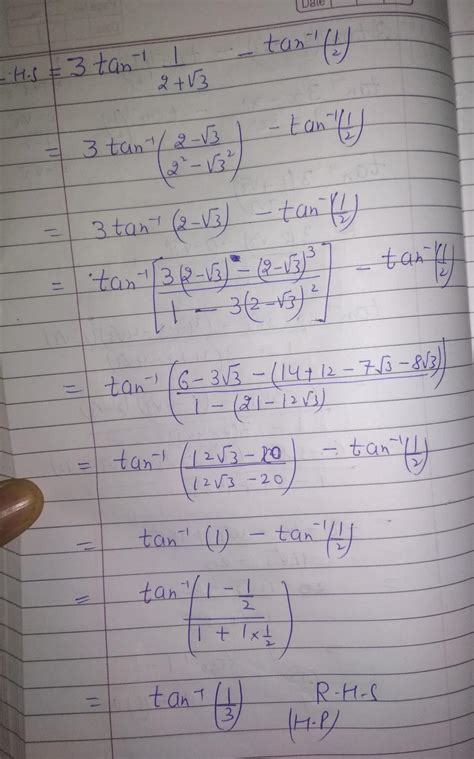 Date
L.H.S = 3 tan⁻¹ 1/(2+√3) - tan⁻¹(1/2)
= 3 tan⁻¹((2-√3)/(2²-√3²)) - tan⁻¹(1/2)
= 3 tan⁻¹ (2-√3) - tan⁻¹(1/2)
= tan⁻¹[(3(2-√3) - (2-√3)³)/(1 - 3(2-√3)²)] - tan⁻¹(1/2)
= tan⁻¹((6-3√3-(14+12-7√3-8√3))/(1-(21-12√3)))
= tan⁻¹((12√3-20)/(12√3-20)) - tan⁻¹(1/2)
= tan⁻¹ (1) - tan⁻¹(1/2)
= tan⁻¹((1 - 1/2)/(1 + 1×1/2))
= tan⁻¹(1/3) R.H.S
(H.P)